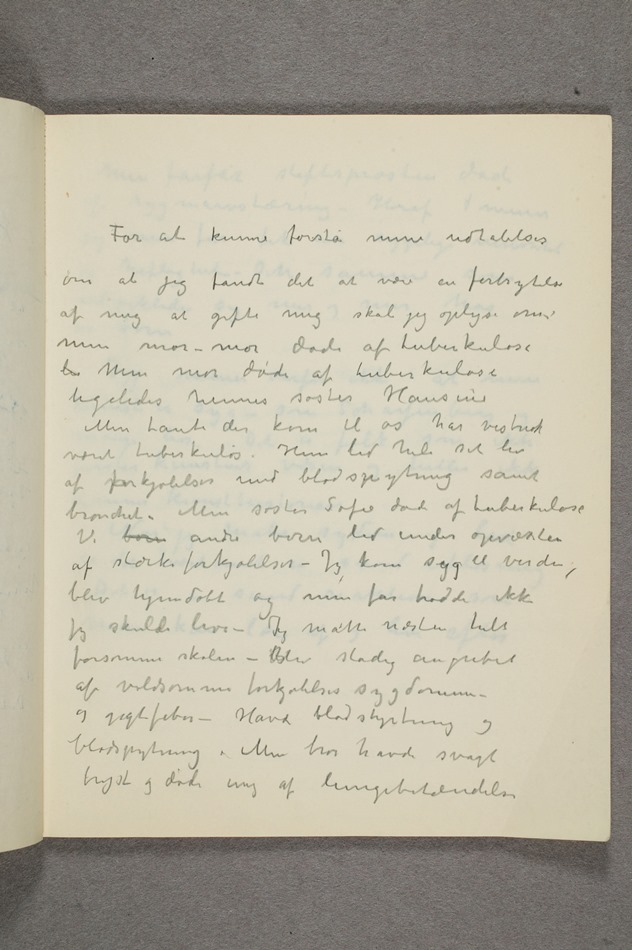 For at kunne forstå mine udtalelser
om at jeg fandt det at være en forbrytelse
af mig at gifte mig skal jeg oplyse om:
min mor-mor døde af tuberkulose
Min mor døde af tuberkulose
ligeledes hennes søster Hansine
Min tante der kom til os har vestnok
været tuberkuløs. Hun led hele sit liv
af forkjølelser med blodspytning samt
bronchit. Min søster Sofie døde af tuberkulose
Vi børn andre børn led under opvæxten
af stærke forkjølelser – Jeg kom syg til verden,
blev hjemdøbt og min far trodde ikke
jeg skulde leve – Jeg måtte næsten helt
forsømme skolen – Blev stadig angrebet
af voldsomme forkjølelses sygdomme –
og gigtfeber – Havde blodstyrtning og
blodspytning. Min bror havde svagt
bryst og døde ung af lungebetændelse